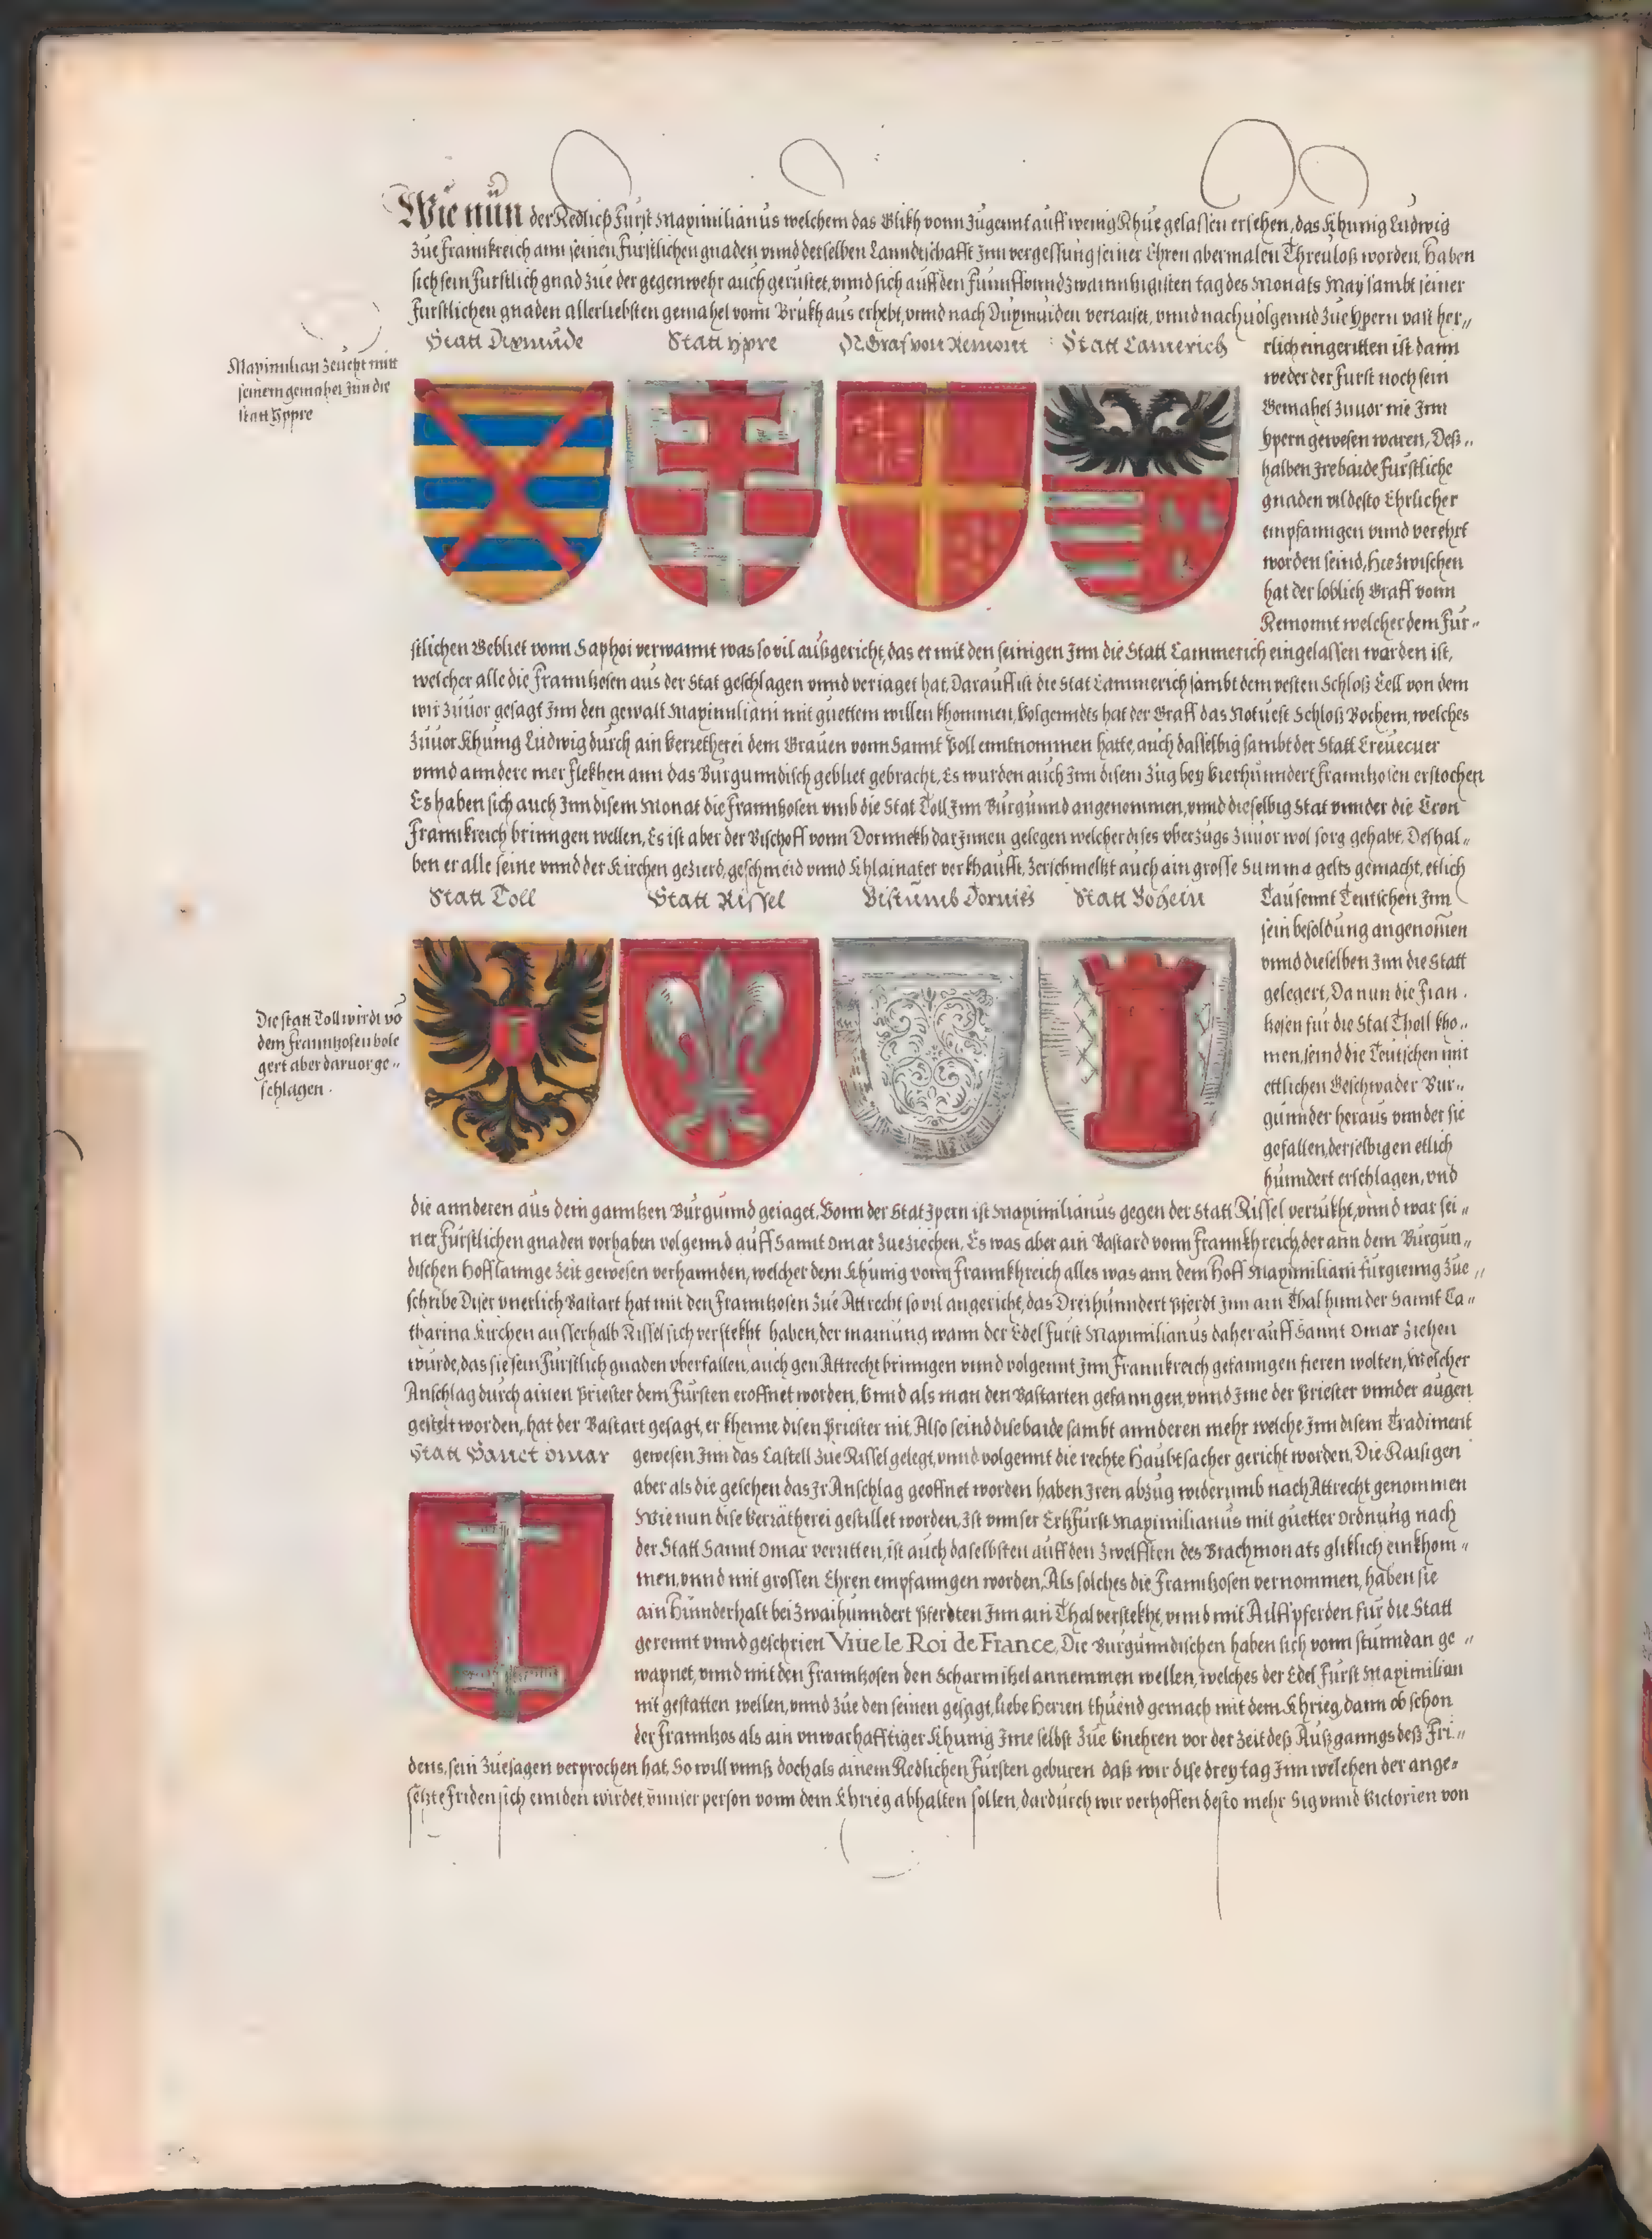 Wie nün der Redlich Fürst Maximilianus welchem das Glikh vonn Jugennt auff wenig Rhue gelassen ersehen, das Khünig Ludwig
Zue Frannkreich ann seinen Fürstlichen gnaden vnnd derselben Lanndtschafft Inn vergessung seiner Ehren abermalen Threuloß worden, Haben
sich sein Fürstlich gnad zue der gegenwehr auch gerüstet, vnnd sich auff den Fünnffvnndzwainnzigisten tag des Monats May sambt seiner
Fürstlichen gnaden allerliebsten gemahel vonn Brukh aus erhebt, vnnd nach Dixmuiden verraiset, vnnd nachuolgennd zue Ypern vast her,,
Statt Dixmude
Statt Ypre
Graf von Remont
Statt Camerich
Maximilian zeucht mitt
seinem gemahel Inn die
statt Yppre
rlich eingeritten ist dann
weder der Fürst noch sein
Gemahel zuuor nie Inn
Ypern gewesen waren, Deß,,
halben Ire baide Fürstliche
gnaden vil desto Ehrlicher
empfanngen vnnd verehrt
worden seind, Hiezwischen
hat der loblich Graff vonn
Remonnt welcher dem Für,,
stlichen Gebliet vonn Saphoi verwannt was so vil außgericht, das er mit den seinigen Inn die Statt Cammerich eingelassen warden ist,
welcher alle die Frannkosen aus der Stat geschlagen vnnd veriaget hat, Darauff ist die Stat Cammerich sambt dem vesten Schloß Cell von dem
wir zuuor gesagt Inn den gewalt Maximiliani mit guettem willen khommen, Volgenndts hat der Graff das Notuest Schloß Bochem, welches
zuuor Khünig Ludwig durch ain Verretherei dem Grauen vonn Sannt Poll enntnommen hatte, auch dasselbig sambt der Statt Creuecuer
vnnd anndere mer Flekhen ann das Burgunndisch gebliet gebracht, Es wurden auch Inn disem Zug bey Vierhünndert Frannkosen erstochen
Es haben sich auch Inn disem Monat die Franntzosen vmb die Stat Toll Inn Burgünnd angenommen, vnnd dieselbig Stat vnnder die Cron
Frannkreich brinngen wellen, Es ist aber der Bischoff vonn Dornnekh darInnen gelegen welcher dises vberzugs zuuor wol sorg gehabt, Deshal,,
ben er alle seine vnnd der Kirchen gezierd, geschmeid vnnd Khlainater verkhaufft, zerschmeltzt auch ain grosse Summa gelts gemacht, etlich
Statt Toll
Statt Rissel
Bistumb Dornikh
Statt Bohein
Tausennt Teutschen Inn
sein besoldung angenomen
vnnd dieselben Inn die Statt
gelegert, Da nun die Fran.
tzosen für die Stat Tholl kho,,
men, seind die Teutschen mit
ettlichen Geschwader Bur,,
günnder heraus vnnder sie
gefallen, derselbigen etlich
hünndert erschlagen, vnd
Die statt Toll wirdt vō
dem Franntzosen bele
gert aber daruor ge,,
schlagen.
die annderen aus dem ganntzen Bürgunnd geiaget, Vonn der Stat Ipern ist Maximilianus gegen der Statt Rissel verrukht, vnnd war sei,,
ner Fürstlichen gnaden vorhaben volgennd auff Sannt Omar zue ziechen, Es was aber ain Bastard vonn Frannkhreich, der ann dem Burgun,,
dischen Hoff lannge Zeit gewesen verhannden, welcher dem Khünig vonn Frannkhreich alles was ann dem Hoff Maximiliani fürgienng zue,,
schribe Diser vnerlich Bastart hat mit den Franntzosen zue Attrecht so vil angericht, das Dreihünndert Pferdt Inn ain Thal hinn der Sannt Ca,,
tharina Kirchen ausserhalb Rissel sich verstekht haben, der mainung wann der Edel Fürst Maximilianus daher auff Sannt Omar ziehen
würde, das sie sein Fürstlich gnaden vberfallen, auch gen Attrecht brinngen vnnd volgennt Inn Frannkreich gefanngen fieren wolten, Welcher
Anschlag durch ainen Priester dem Fürsten eroffnet worden, Vnnd als man den Bastarten gefanngen, vnnd Ime der Priester vnnder augen
gestelt worden, hat der Bastart gesagt, er khenne disen Priester nit, Also seind dise baide sambt annderen mehr welche Inn disem Tradiment
Statt Sanct Omar
gewesen Inn das Castell zue Rissel gelegt, vnnd volgennt die rechte Haubtsacher gericht worden, Die Raisigen
aber als die gesehen das Ir Anschlag geoffnet worden haben Iren abzug widerumb nach Attrecht genommen
Wie nun dise Verrätherei gestillet worden, Ist vnnser Ertzfürst Maximilianus mit guetter Ordnung nach
der Statt Sannt Omar verritten, ist auch daselbsten auff den zwelfften des Brachmonats gliklich einkhom,,
men, vnnd mit grossen Ehren empfanngen worden, Als solches die Franntzosen vernommen, haben sie
ain Hünnderhalt bei Zwaihünndert Pferdten Inn ain Thal verstekht, vnnd mit Auffpferden für die Statt
gerennt vnnd geschrien Viue le Roi de France, Die Burgunndischen haben sich vonn stünndan ge,,
wapnet, vnnd mit den Franntzosen den Scharmitzel annemmen wellen, welches der Edel Fürst Maximilian
nit gestatten wellen, vnnd zue den seinen gesagt, liebe Herren thuend gemach mit dem Khrieg, dann ob schon
der Franntzos als ain vnwarhafftiger Khünig Ime selbst zue Vnehren vor der Zeit deß Außganngs deß Fri,,
dens, sein zuesagen versprochen hat, So will vnnß doch als ainem Redlichen Fürsten geburen daß wir dise drey tag Inn welchen der ange,,
setzte Friden sich ennden wirdet, vnnser person vonn dem Khrieg abhalten sollen, dardurch wir verhoffen desto mehr Sig vnnd Victorien von